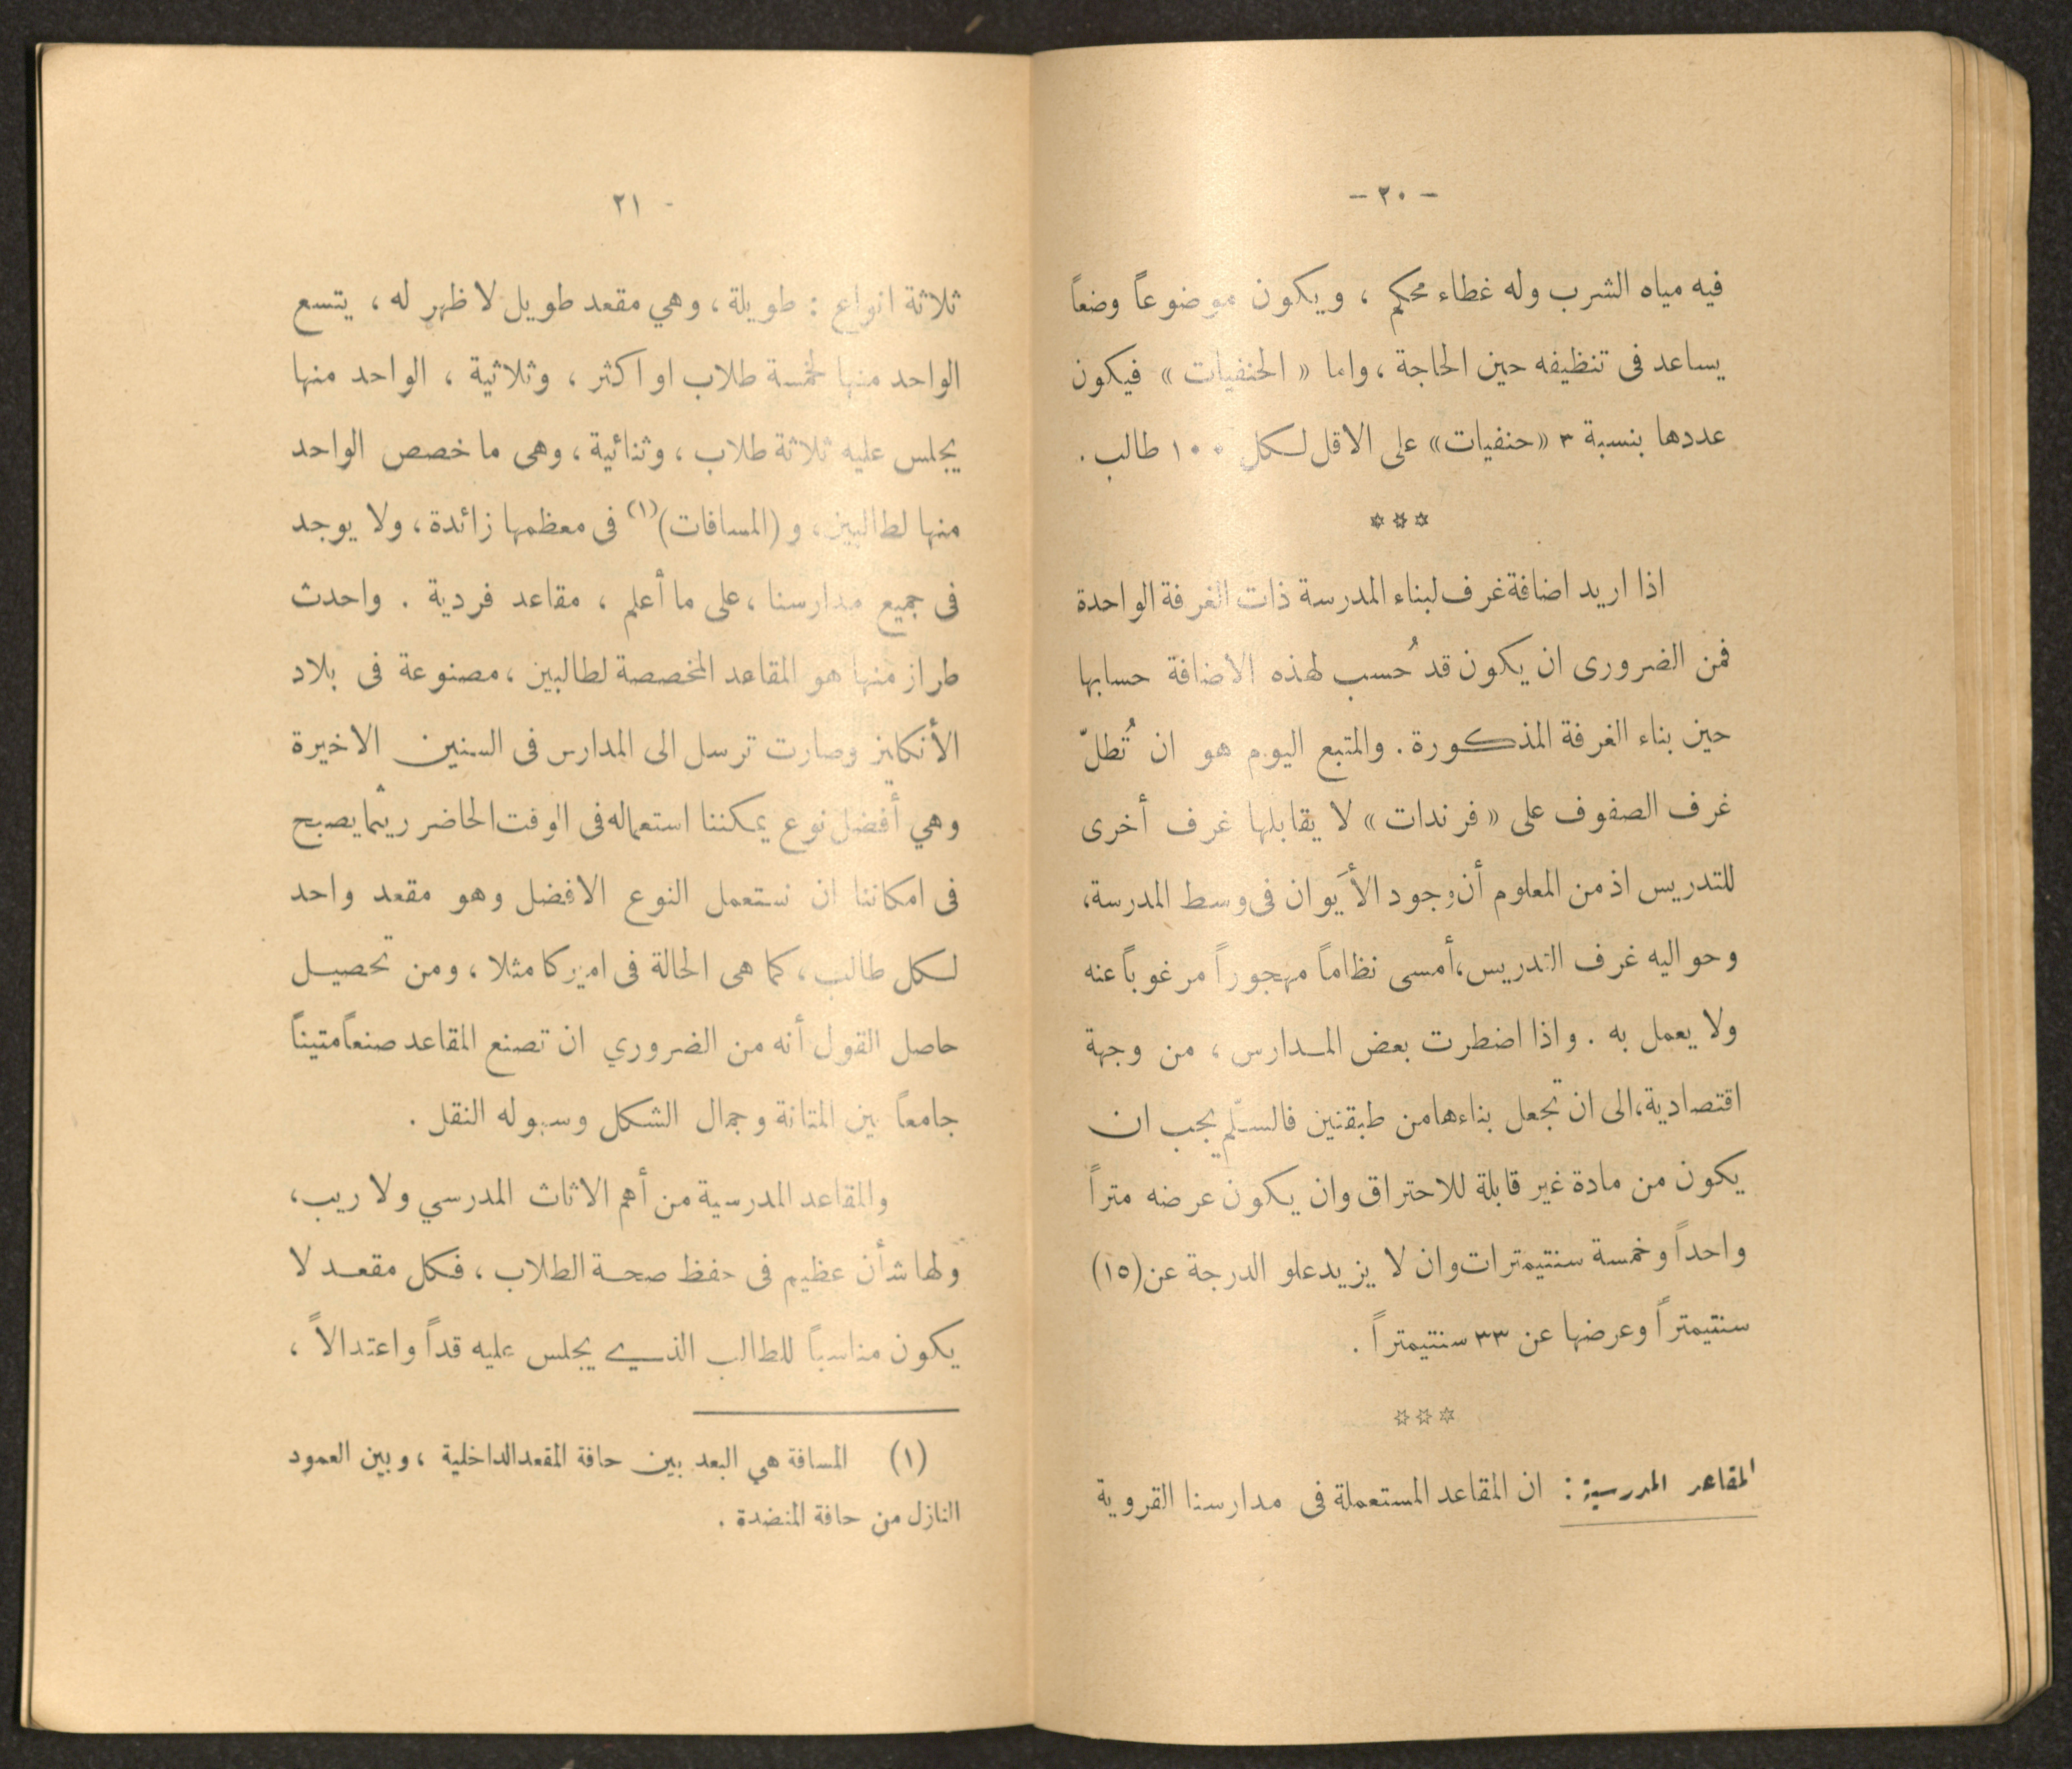 - ٢٠ -
فيه مياه الشرب وله غطاء محكم ، ويكون موضوعاً وضعاً
يساعد فى تنظيفه حين الحاجة ، واما « الحنفيات » فيكون
عددها بنسبة ٣ «حنفيات» على الاقل لكل ١٠٠ طالب .
***
اذا اريد اضافة غرف لبناء المدرسة ذات الغرفة الواحدة
فمن الضرورى ان يكون قد حُسب لهذه الاضافة حسابها
حين بناء الغرفة المذكورة . والمتبع اليوم هو ان تُطلّ
غرف الصفوف على « فرندات » لا يقابلها غرف أخرى
للتدريس اذ من المعلوم أن وجود الأَيوان فى وسط المدرسة،
وحواليه غرف التدريس،أمسى نظاماً مهجوراً مرغوباً عنه
ولا يعمل به . واذا اضطرت بعض المدارس ، من وجهة
اقتصادية،الى ان تجعل بناءها من طبقتين فالسلّم يجب ان
يكون من مادة غير قابلة للاحتراق وان يكون عرضه متراً
واحداً وخمسة سنتيمترات وان لا يزيد علو الدرجة عن (١٥)
سنتيمتراً وعرضها عن ٣٣ سنتيمتراً .
***
المقاعد المدرسية : ان المقاعد المستعملة فى مدارسنا القروية
- ٢١
ثلاثة انواع : طويلة ، وهي مقعد طويل لا ظهر له ، يتسع
الواحد منها لخمسة طلاب او اكثر ، وثلاثية ، الواحد منها
يجلس عليه ثلاثة طلاب ، وثنائية ، وهى ما خصص الواحد
منها لطالبين ، و (المسافات)(١) فى معظمها زائدة ، ولا يوجد
فى جميع مدارسنا ، على ما أعلم ، مقاعد فردية . واحدث
طراز منها هو المقاعد المخصصة لطالبين ، مصنوعة فى بلاد
الأنكليز وصارت ترسل الى المدارس فى السنين الاخيرة
وهي أفضل نوع يمكننا استعماله فى الوقت الحاضر ريثما يصبح
فى امكاننا ان نستعمل النوع الافضل وهو مقعد واحد
لكل طالب ، كما هى الحالة فى اميركا مثلا ، ومن تحصيل
حاصل القول أنه من الضروري ان تصنع المقاعد صنعاً متيناً
جامعاً بين المتانة وجمال الشكل وسهوله النقل .
والمقاعد المدرسية من أهم الاثاث المدرسي ولا ريب ،
ولها شأن عظيم فى حفظ صحة الطلاب ، فكل مقعد لا
يكون مناسباً للطالب الذي يجلس عليه قداً واعتدالاً ،
(١) المسافة هي البعد بين حافة المقعد الداخلية ، وبين العمود
النازل من حافة المنضدة .